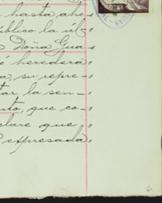 hasta aho
público la úl
Doña Gua
heredera
a, su repre
ar la sen
to, que co
clare que
expresada